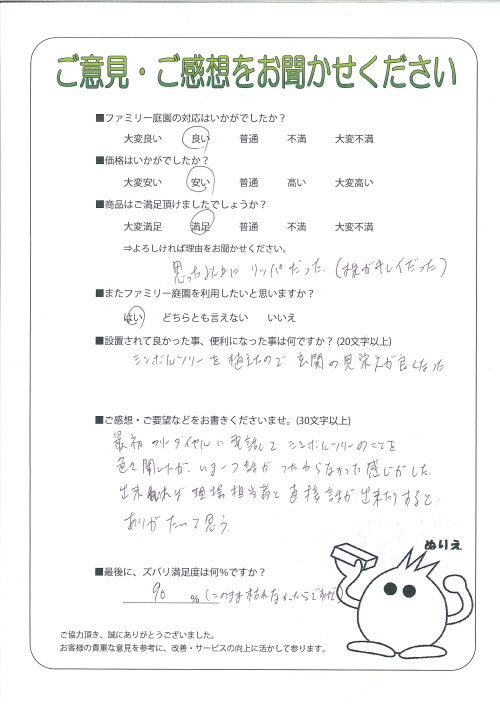 ご意見・ご感想をお聞かせください
■ファミリー庭園の対応はいかがでしたか?
大変良い 良い 普通 不満 大変不満
■価格はいかがでしたか?
大変安い 安い 普通 高い 大変高い
■商品はご満足頂けましたでしょうか?
大変満足 満足 普通 不満 大変不満
⇒よろしければ理由をお聞かせください。
思った以上に リッパだった。(枝がキレイだった)
■またファミリー庭園を利用したいと思いますか?
はい どちらとも言えない いいえ
■設置されて良かった事、便利になった事は何ですか? (20文字以上)
シンボルツリーを植えたので 玄関の見栄えが良くなった
■ご感想・ご要望などをお書きくださいませ。(30文字以上)
最初 フリーダイヤルに電話して シンボルツリーのことを
色々聞いたが、いま一つ話が つたわらなかった感じがした。
出来れば 現場担当者と直接話が出来たりすると
ありがたいって思う。
■最後に、ズバリ満足度は何%ですか?
90 % (このまま枯れなかったら
ぬりえ
ご協力頂き、誠にありがとうございました。
お客様の貴重な意見を参考に、改善・サービスの向上に活かして参ります。